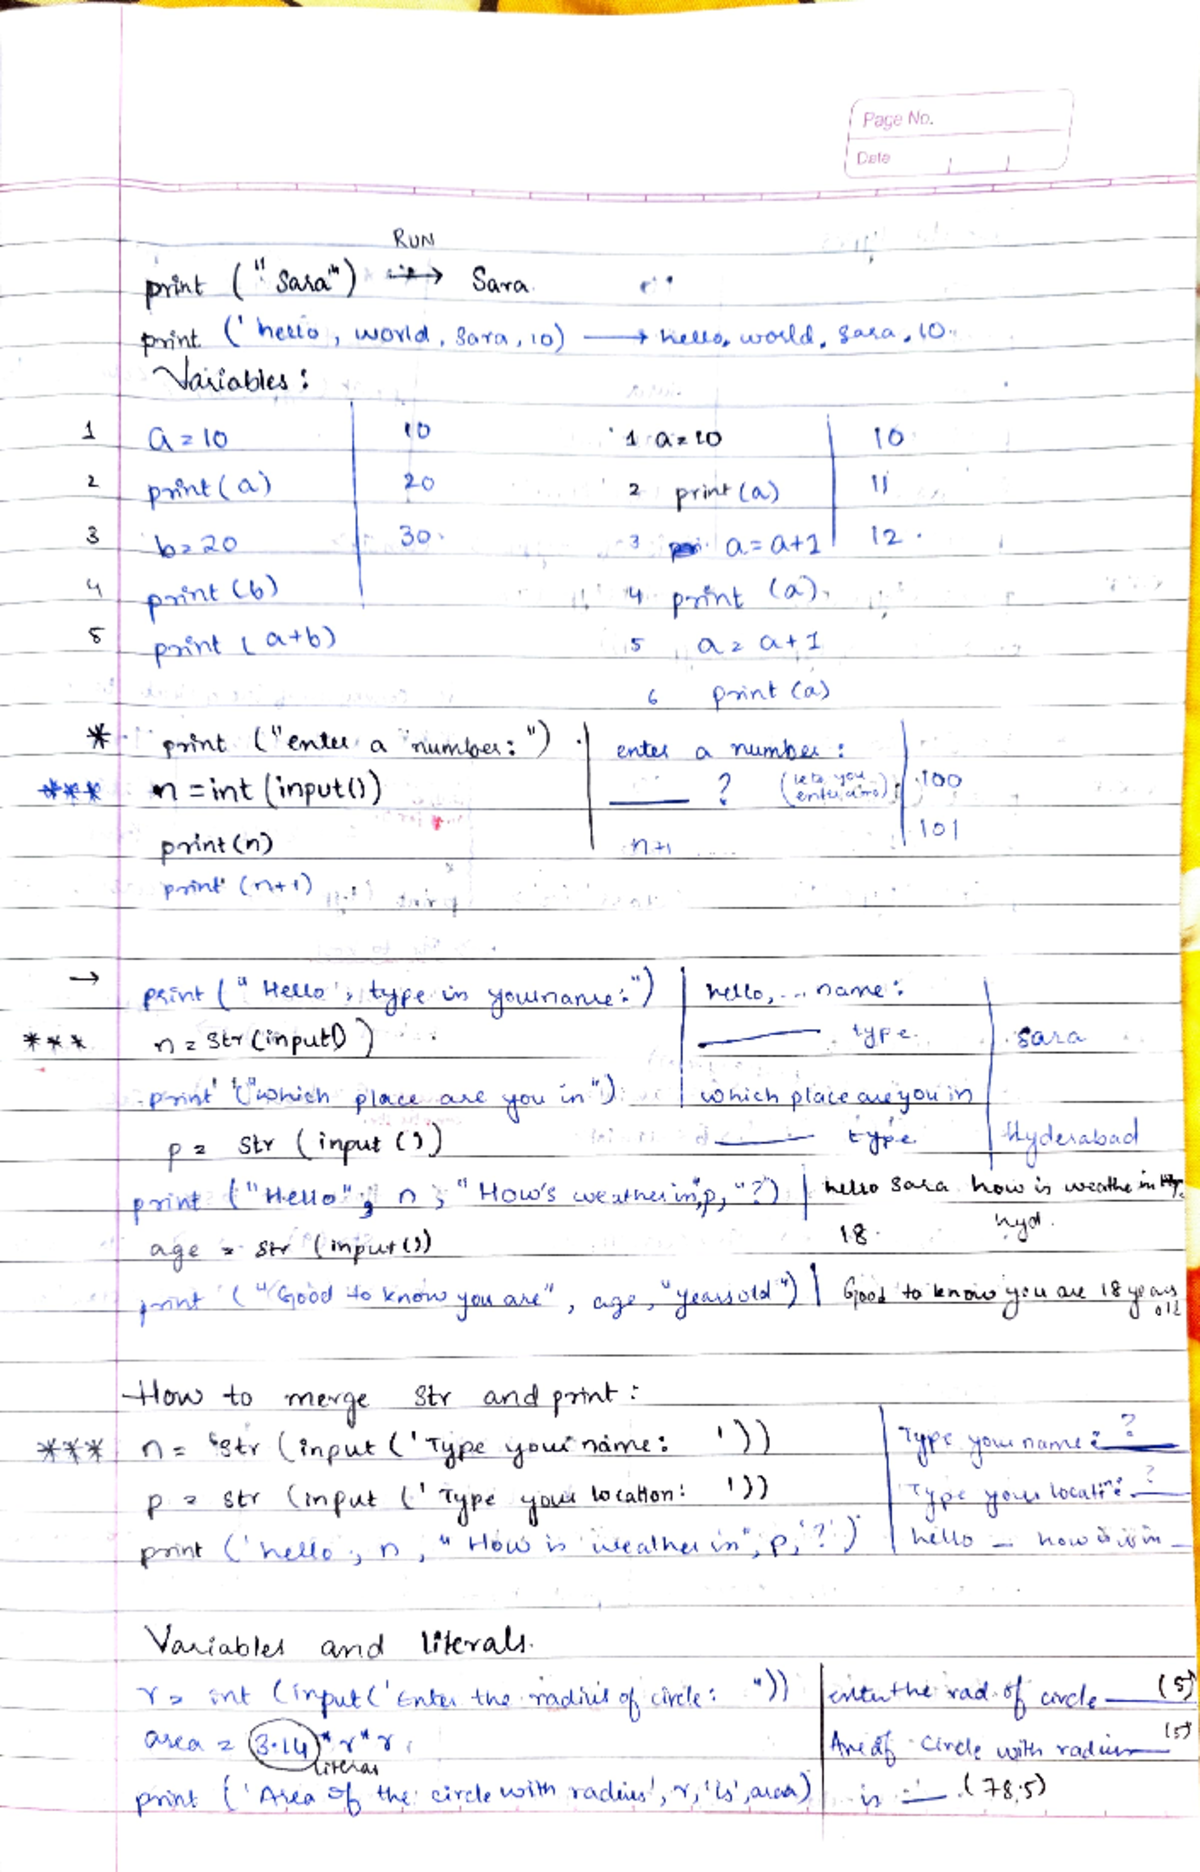 Page No.
Date
RUN
print ("Sara") → Sara
print ('hello, world, Sara, 10) → hello, world, Sara, 10
Variables :
1 a = 10 | 10
2 print (a) | 20
3 b = 20 | 30
4 print (b)
5 print (a+b)
1 a = 10 | 10
2 print (a) | 11
3 a = a+1 | 12
4 print (a)
5 a = a+1
6 print (a)
* print ("enter a number: ") | enter a number :
*** n = int (input()) | ___ ? (lets you | 100
print (n) | n+1 | 101
print (n+1)
→ print (" Hello, type in your name:") | hello, ... name :
*** n = str (input()) | ___ type | sara
print ("which place are you in") | which place are you in
p = str (input ()) | ___ type | Hyderabad
print ("Hello", n, "How's weather in", p, "?) | hello Sara how is weathe in
hyd.
age = str (input ()) 18.
print ("Good to know you are", age, "years old") | Good to know you are 18 years
old
How to merge str and print :
*** n = str (input ('Type your name: ')) | Type your name : ?
p = str (input ('Type your location: ')) | Type your locati : ?
print ('hello, n, " How is weather in", p, '?') | hello _ how is in _
Variables and literals.
r = int (input ('Enter the radius of circle: ")) | enter the rad. of circle ___ (5)
area = 3.14 * r * r | Area of circle with radius ___ (5)
literal
print ('Area of the circle with radius', r, 'is', area) | is ___ (78.5)